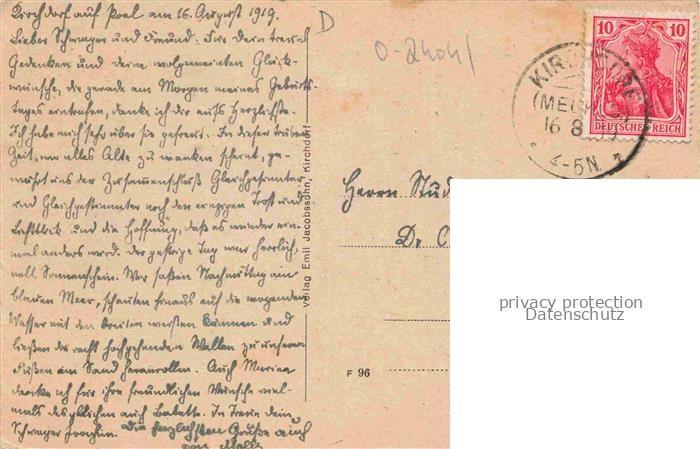 Kirchdorf auf Poel am 16. August 1919.
Lieber Schwager und Freund: Für Dein treues
Gedenken und deine wolgemeinten Glück-
wünsche, die gerade am Morgen meines Geburts-
tages eintrafen, danke ich dir aufs Herzlichste.
Ich habe mich sehr über sie gefreut. In dieser trüben
Zeit, wo alles Alte zu wanken scheint, ge-
währt uns der Zusammenschluß Gleichgesinnter
und Gleichgestimmter noch den einzigen Trost und
Lichtblick und die Hoffnung, daß es wieder ein-
mal anders wird. Der gestrige Tag war herrlich,
voll Sonnenschein. Wir saßen Nachmittag am
blauen Meer, schauten hinaus auf die wogenden
Wasser mit den breiten weißen Kämmen und
ließen die recht hochgehenden Wellen zu unseren
Füßen am Sand heranrollen. Auch Marien
danke ich für ihre freundlichen Wünsche viel-
mals desgleichen auch Babette. In Treue dein
Schwager Joachim. Die herzlichsten Grüße auch
von
D
0-2404/
Verlag Emil Jacobssohn, Kirchdorf
F 96
10 10
DEUTSCHES REICH
KIRCHDORF
(MECKLB)
16 8
4-5N.
Herrn Stud
D. C
privacy protection
Datenschutz